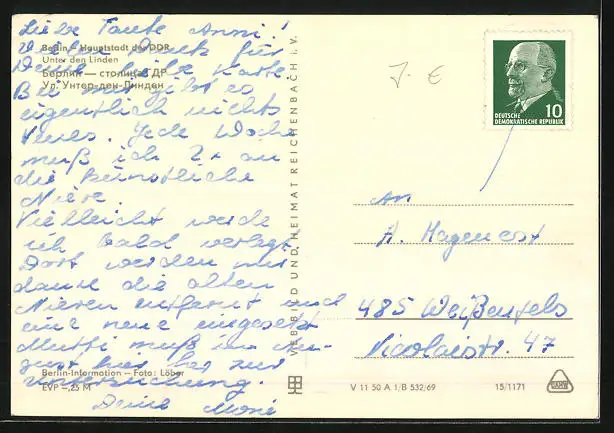 Berlin - Hauptstadt der DDR
Unter den Linden
Берлин — столица ГДР
Ул. Унтер-ден-Линден
Liebe Tante Anni!
Vielen Dank für
Deine liebe Karte
Bei mir gibt es
eigentlich nichts
Neues. Jede Woche
muß ich 2x an
die künstliche
Niere.
Vielleicht werde
ich bald verlegt
Dort werden mir
dann die alten
Nieren entfernt und
eine neue eingesetzt
Mutti muß im
hier her zur
Untersuchung.
Deine
Berlin-Information - Foto: Löber
EVP -,25 M
BILD UND HEIMAT REICHENBACH i. V.
DEUTSCHE
DEMOKRATISCHE REPUBLIK
10
An
A. Hagenest
485 Weißenfels
Nicolaistr. 47
V 11 50 A 1/B 532/69
15/1171